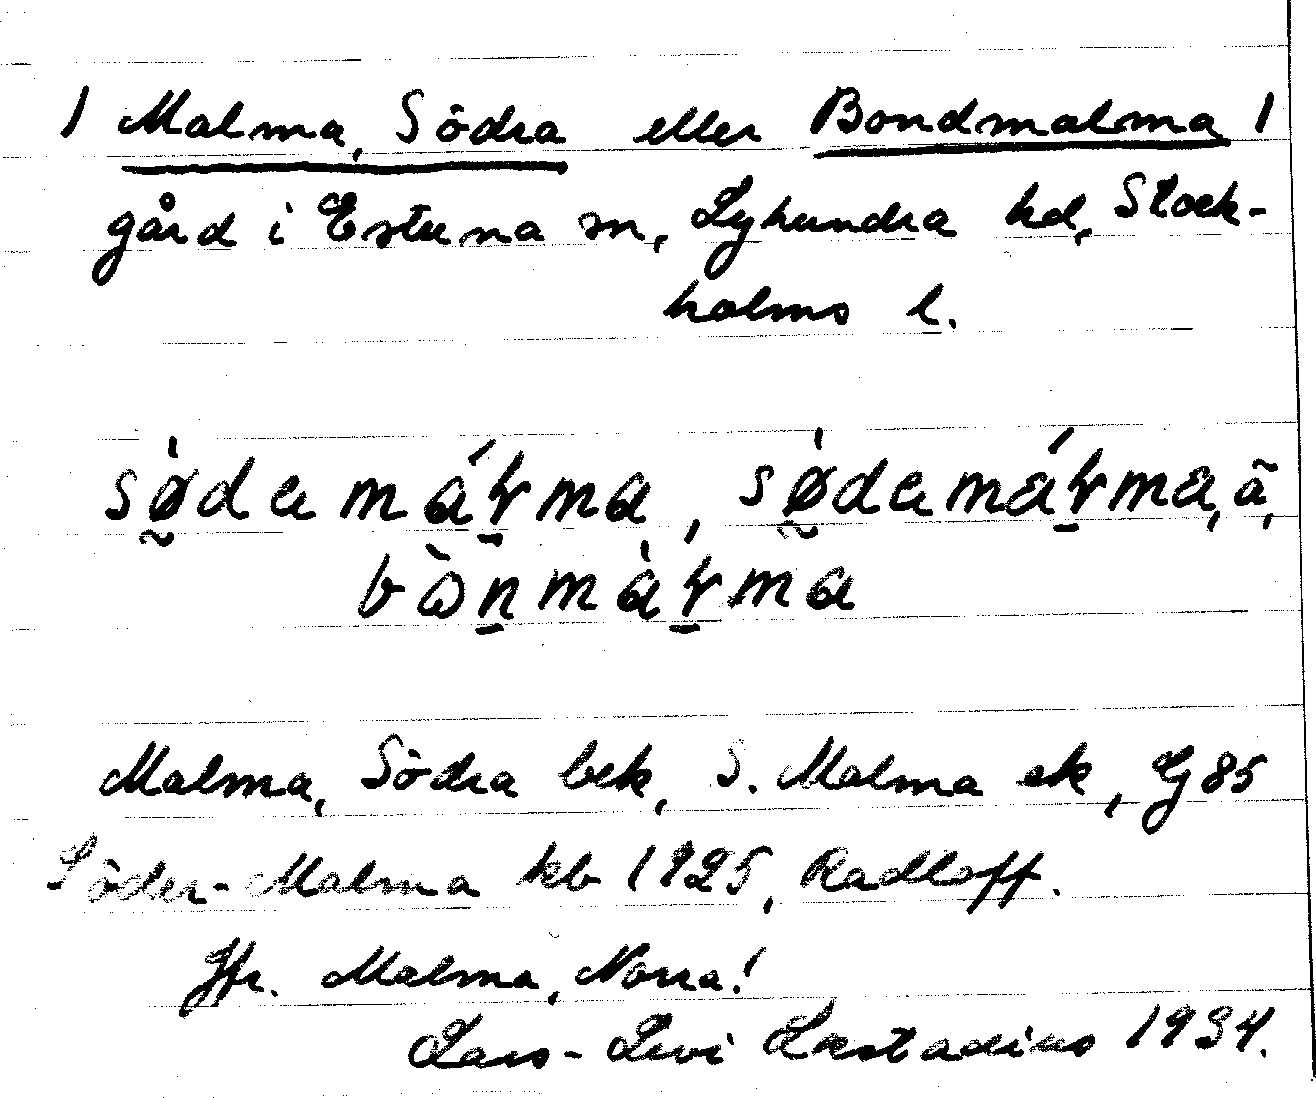 1 Malma, Södra eller Bondmalma 1
gård i Estuna sn, Lyhundra hd, Stock-
holms l.
sø̀da máɽma, sø̀damáɽma, ã,
bὼnmàɽma
Malma, Södra bek, S. Malma ek, Gj 85
Söder-Malma kb 1925, Radloff.
Jfr. Malma, Norra!
Lars-Levi Læstadius 1934.